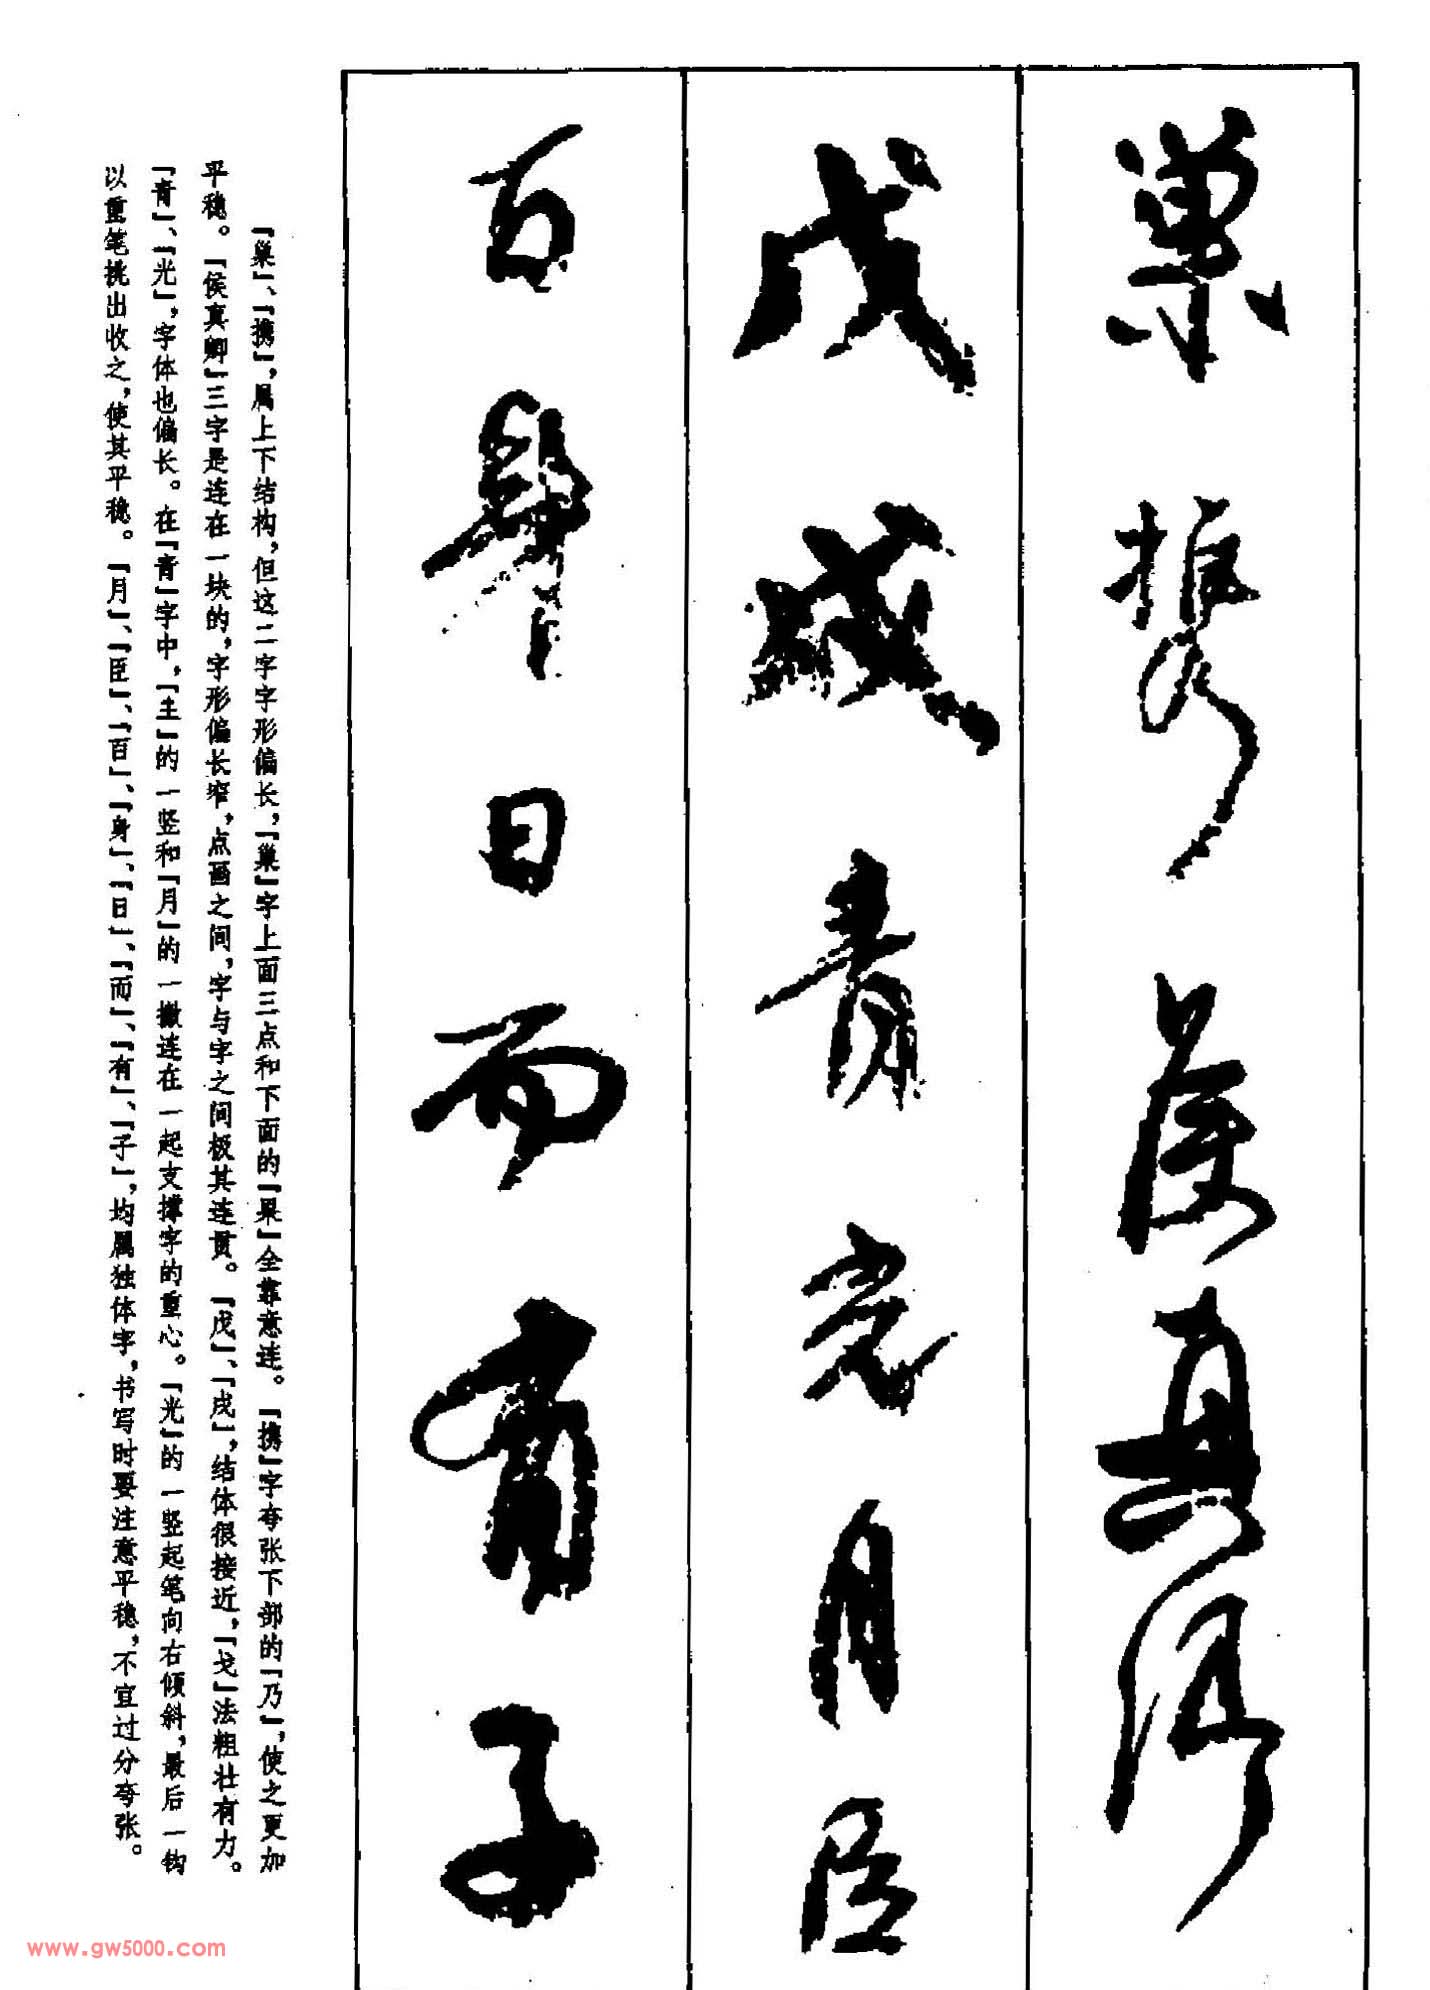 巢携侯真卿
戊戌青光月臣
百身日而有子
「巢」、「携」，属上下结构，但这二字字形偏长，「巢」字上面三点和下面的「果」全靠意连。「携」字夸张下部的「乃」，使之更加
平稳。「侯真卿」三字是连在一块的，字形偏长窄，点画之间，字与字之间极其连贯。「戊」、「戌」，结体很接近，「戈」法粗壮有力。
「青」、「光」，字体也偏长。在「青」字中，「主」的一竖和「月」的一撇连在一起支撑字的重心。「光」的一竖起笔向右倾斜，最后一钩
以重笔挑出收之，使其平稳。「月」、「臣」、「百」、「身」、「日」、「而」、「有」、「子」，均属独体字，书写时要注意平稳，不宜过分夸张。
www.gw5000.com